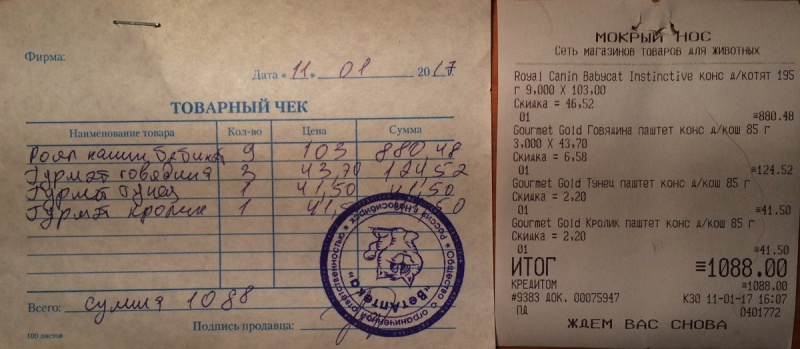 Фирма:
Дата « 11 » 01 2017.
ТОВАРНЫЙ ЧЕК
Наименование товара Кол-во Цена Сумма
Роял 9 103 880 48
Гурмэт говядина 3 43,70 124 52
Гурмэт тунец 1 41,50 41,50
Гурмэт кролик 1 41, 50
Всего: сумма 1088
Подпись продавца:
100 листов
Общество с ограниченной ответственностью
"ВетАптека"
МОКРЫЙ НОС
Сеть магазинов товаров для животных
Royal Canin Babycat Instinctive конс д/котят 195
г 9,000 X 103,00
Скидка = 46,52
01 ≡880.48
Gourmet Gold Говядина паштет конс д/кош 85 г
3,000 X 43,70
Скидка = 6,58
01 ≡124.52
Gourmet Gold Тунец паштет конс д/кош 85 г
Скидка = 2,20
01 ≡41.50
Gourmet Gold Кролик паштет конс д/кош 85 г
Скидка = 2,20
01 ≡41.50
ИТОГ ≡1088.00
КРЕДИТОМ ≡1088.00
#9383 ДОК. 00075947 К30 11-01-17 16:07
ПД 0401772
ЖДЕМ ВАС СНОВА